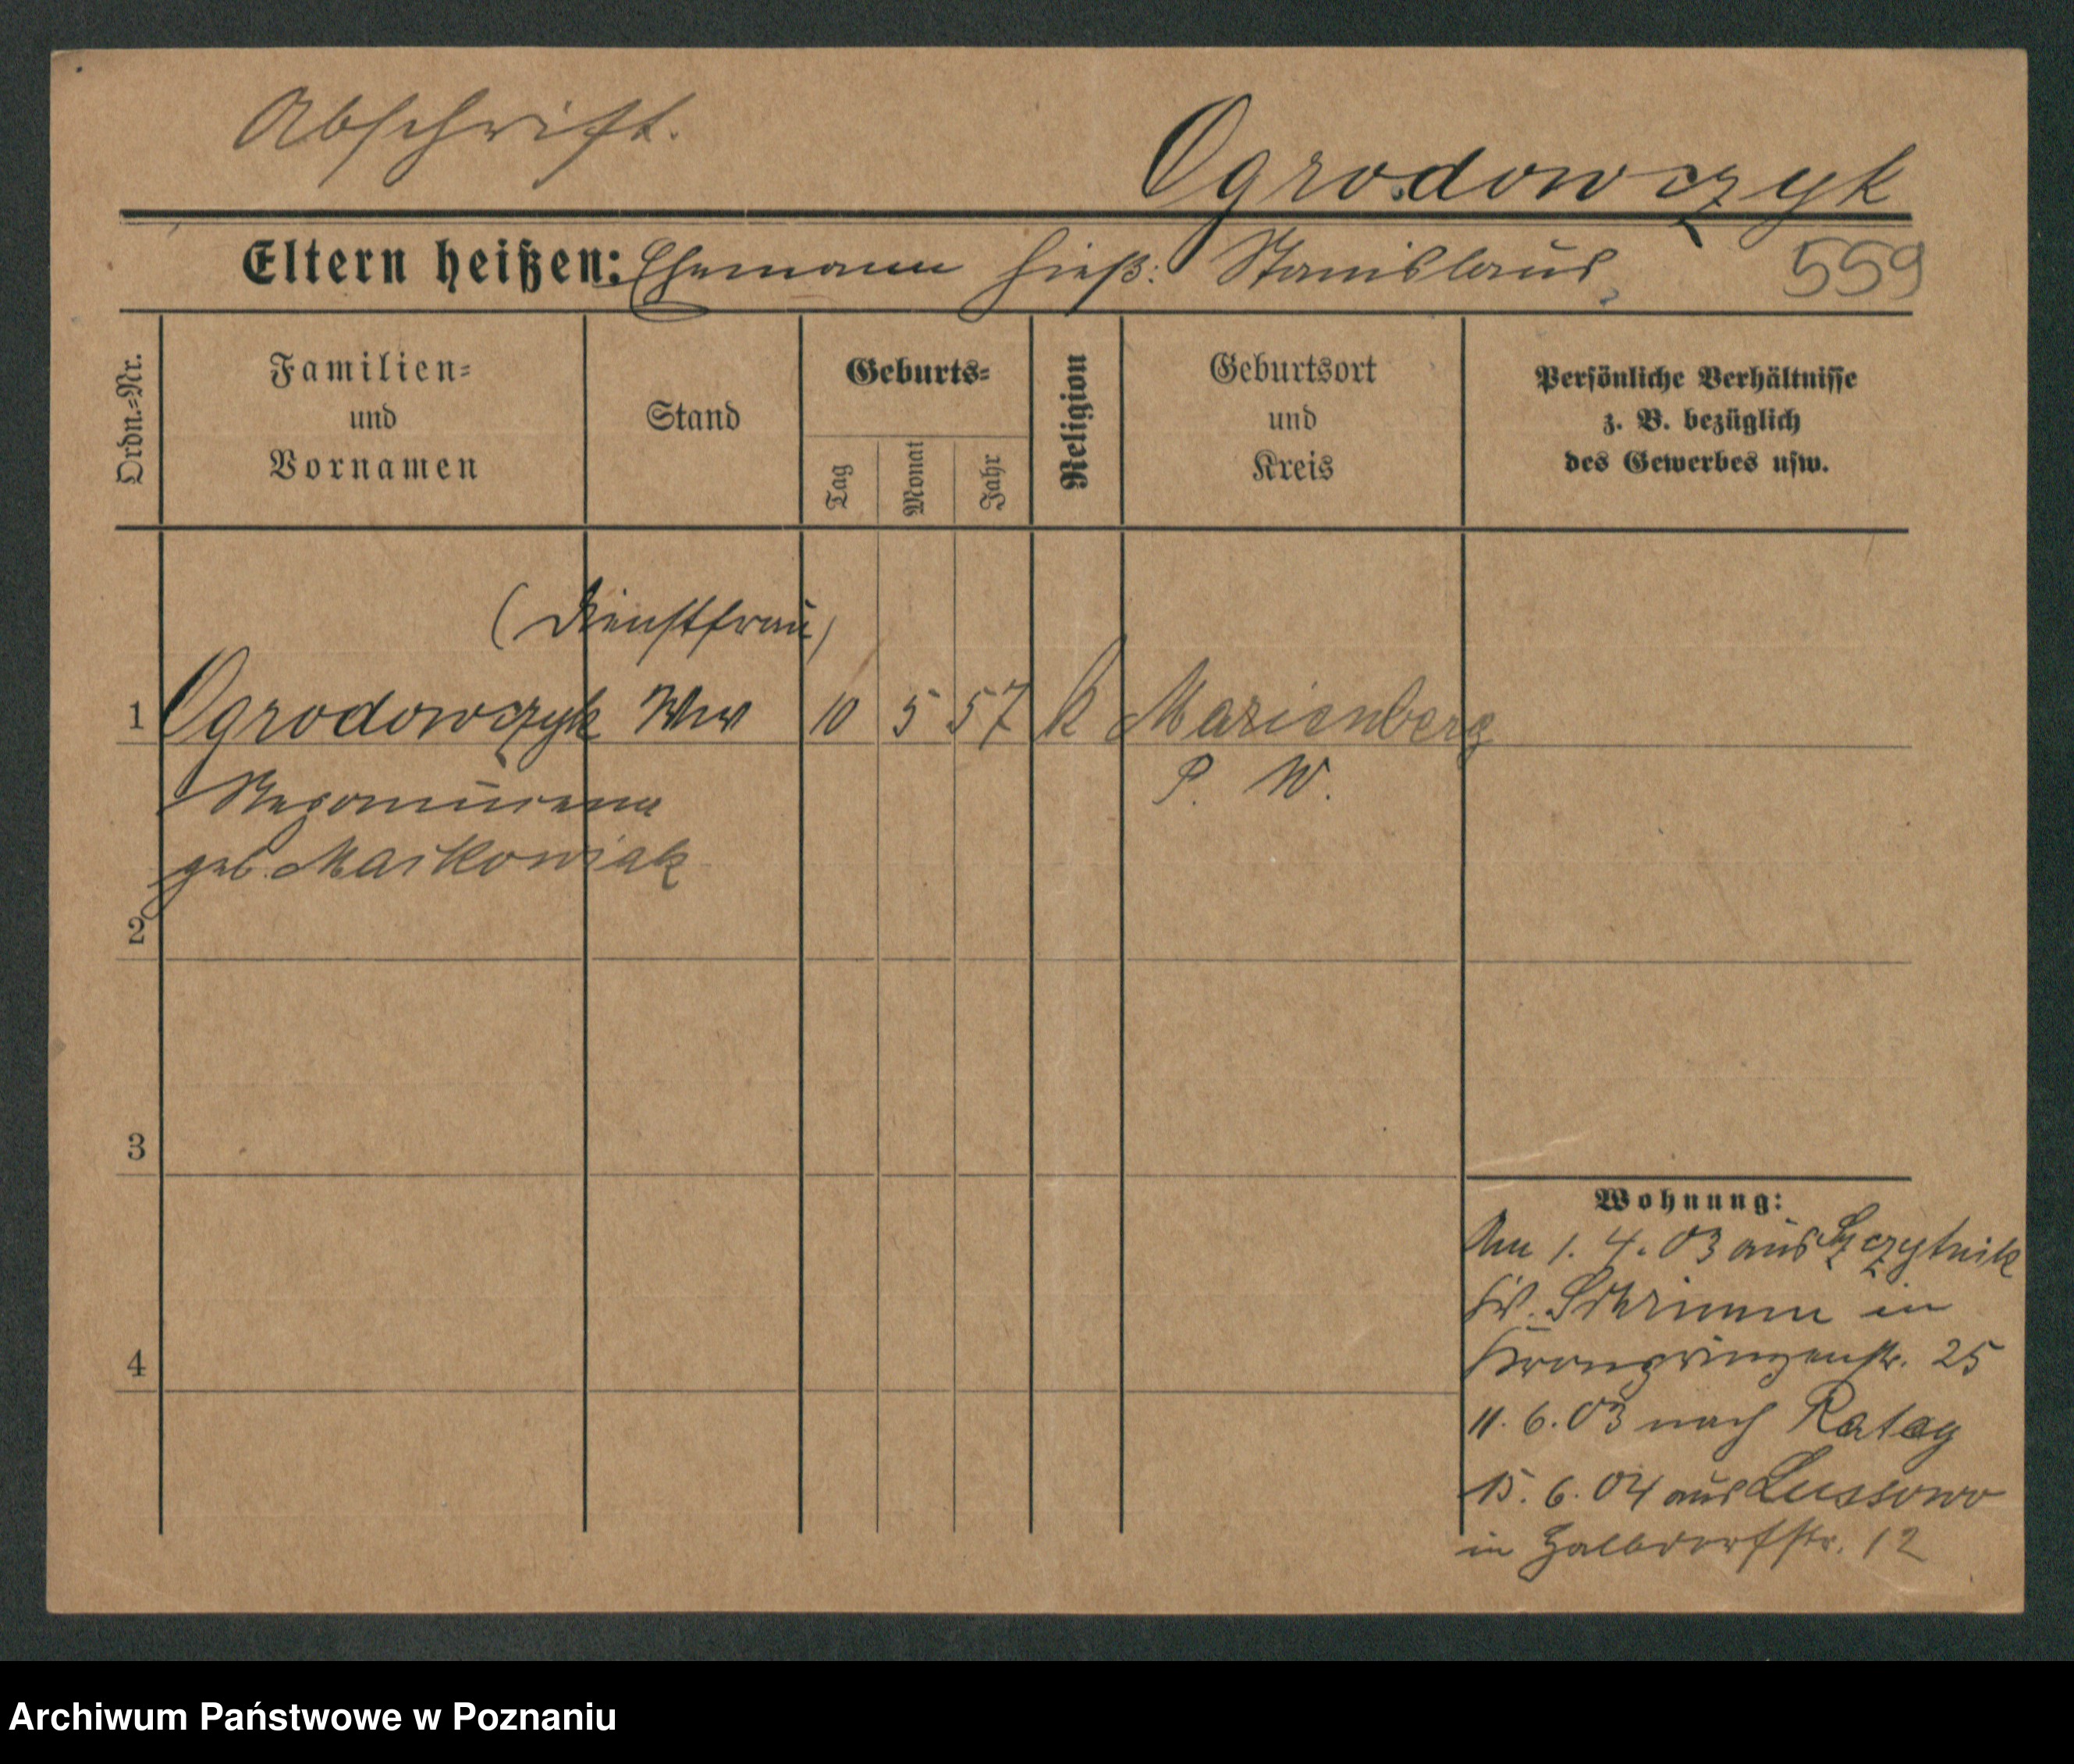 Abschrift.
Ogrodowczyk
Eltern heißen: Ehemann hieß: Stanislaus
559
Ordn.=Nr.
Familien=
und
Vornamen
Stand
Geburts=
Tag
Monat
Jahr
Religion
Geburtsort
und
Kreis
Persönliche Verhältnisse
z. B. bezüglich
des Gewerbes usw.
(Dienstfrau)
1 Ogrodowczyk Ww 10 5 57 k Marienberg
Nepomucena P. W.
geb. Maikowiak
2
3
4
Wohnung:
Am 1. 4. 03 aus Szczytnik
Schrimm in
Kronprinzenstr. 25
11. 6. 03 nach Rataj
15. 6. 04 aus Lussowo
in Halbdorfstr. 12
Archiwum Państwowe w Poznaniu